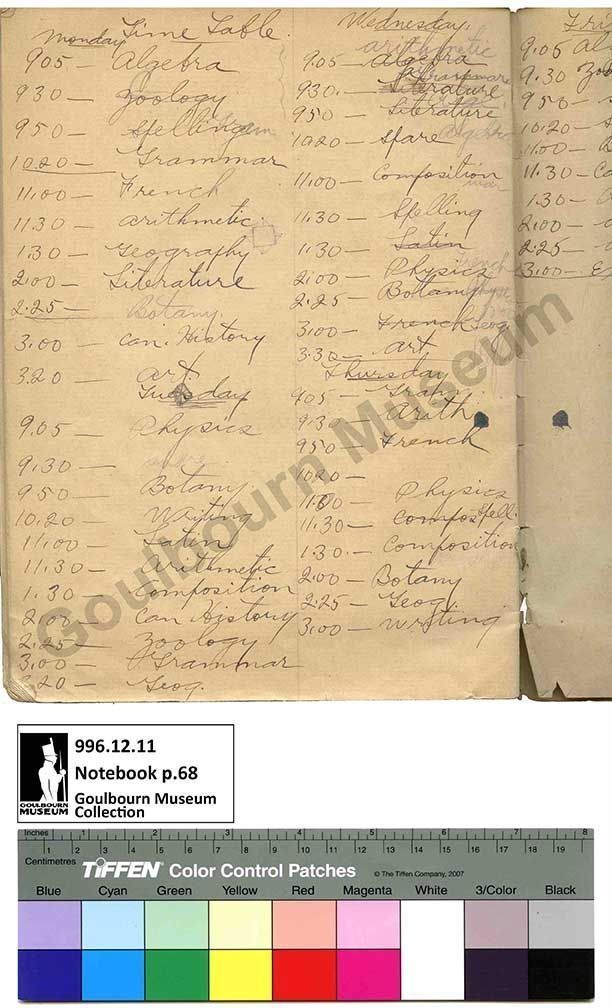 Time Table
Monday
9.05 — Algebra
9.30 — Zoology
9.50 — Spelling
10.20 — Grammar
11.00 — French
11.30 — Arithmetic
1.30 — Geography
2.00 — Literature
2.25 — Botany
3.00 — Can. History
3.20 — Art.
Tuesday
9.05 — Physics
9.30 — spare
9.50 — Botany
10.20 — Writing
11.00 — Latin
11.30 — Arithmetic
1.30 — Composition
2.00 — Can History
2.25 — Zoology
3.00 — Grammar
3.20 — Geog.
Wednesday
arithmetic
9.05 — Algebra
9.30 — Literature
9.50 — Literature
10.20 — Spare
11.00 — Composition
11.30 — Spelling
1.30 — Latin
2.00 — Physics
2.25 — Botany
3.00 — French Geog
3.30 — Art
Thursday
9.05 — Gram.
9.30 — Arith
9.50 — French
10.20 —
11.00 — Physics
11.30 — Compos Spell.
1.30 — Composition
2.00 — Botany
2.25 — Geog.
3.00 — Writing
Fri
9.05 Al
9.30 Zoo
9.50 —
10.20 — S
11.00 —
11.30 — Ca
1.30 — A
2.00 —
2.25 —
3.00 — E
Goulbourn Museum
996.12.11
Notebook p.68
Goulbourn Museum
Collection
GOULBOURN
MUSEUM
Inches 1 2 3 4 5 6 7 8
Centimetres 1 2 3 4 5 6 7 8 9 10 11 12 13 14 15 16 17 18 19
TIFFEN Color Control Patches © The Tiffen Company, 2007
Blue Cyan Green Yellow Red Magenta White 3/Color Black